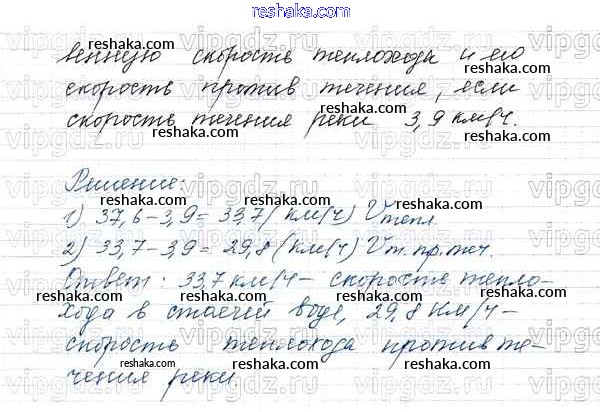 reshaka.com
венную скорость теплохода и его
скорость против течения, если
скорость течения реки 3,9 км/ч.
Решение:
1) 37,6-3,9= 33,7 (км/ч) Vтепл.
2) 33,7-3,9= 29,8 (км/ч) Vт.пр.теч.
Ответ: 33,7 км/ч- скорость тепло-
хода в стоячей воде, 29,8 км/ч-
скорость теплохода против те-
чения реки.
reshaka.com